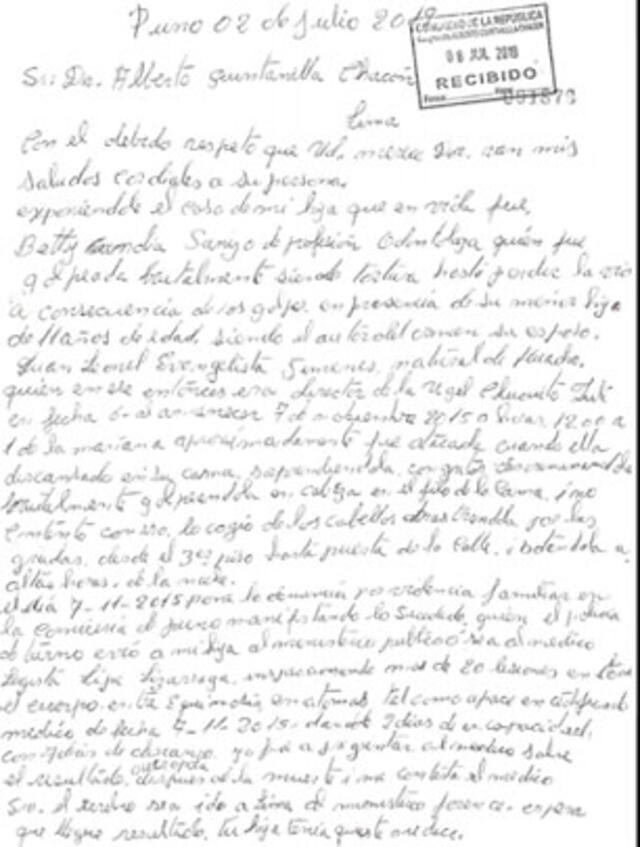 Puno 02 de Julio 2018
CONGRESO DE LA REPUBLICA
06 JUL 2018
RECIBIDO
Sr: Dr. Alberto Quintanilla Chacon
Lima
Con el debido respeto que Ud. merece Dr. van mis
saludos cordiales a su persona.
exponiendole el caso de mi hija que en vida fue,
Betty Sanizo de profesión Odontologa quién fue
golpeada brutalmente siendo tortura hasta perder la
a consecuencia de los golpe, en presencia de su menor hija
de 11 años de edad, siendo el autor del crimen su esposo.
Juan Leonel Evangelista Gimenes, natural de
quién en ese entonces era director de la Ugel Chucuito
en fecha 6 al amanecer 7 de noviembre 2015 a horas 12:00 a
1 de la mañana aproximadamente fue atacada cuando ella
descansado en su cama, sorprendiendola, con
brutalmente golpeandola en cabeza en el filo de la cama, i no
contento con eso, lo cogio de los cabellos por las
gradas, desde el 3er piso hasta puesta de la calle, i botandola a
altas horas, de la noche.
el día 7-11-2015 pone la denuncia por violencia familiar en
la comisería de puno manifestando lo sucedido, quién el policia
de turno envió a mi hija al ministerio publico o sea al medico
legista Lipa Lizarraga, mas de 20 lesiones en todo
el cuerpo, entre tal como apace en certificado
medico de fecha 7-11-2015. dandole 2 dias de incapacidad,
con 7 dias de descanzo. yo fue a preguntar al medico sobre
el resultado, despues de la muerte i me contesta el medico
Sra. el serebro sea ido a Lima al ministerio forence. espera
que llegue resultado, tu hija tenia que me dice.